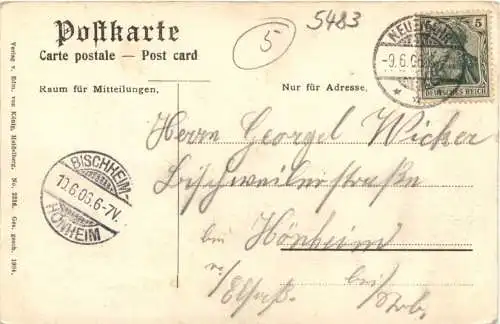 Postkarte
Carte postale — Post card
Raum für Mitteilungen.
Nur für Adresse.
5
5483
-9.6.06.
5
DEUTSCHES REICH
Herrn George Wicker
Bischweilerstraße
bei Hönheim
Elsaß bei Strb.
BISCHHEIM-
10.6.06.6-7V.
HÖNHEIM
Verlag v. Edm. von König, Heidelberg.